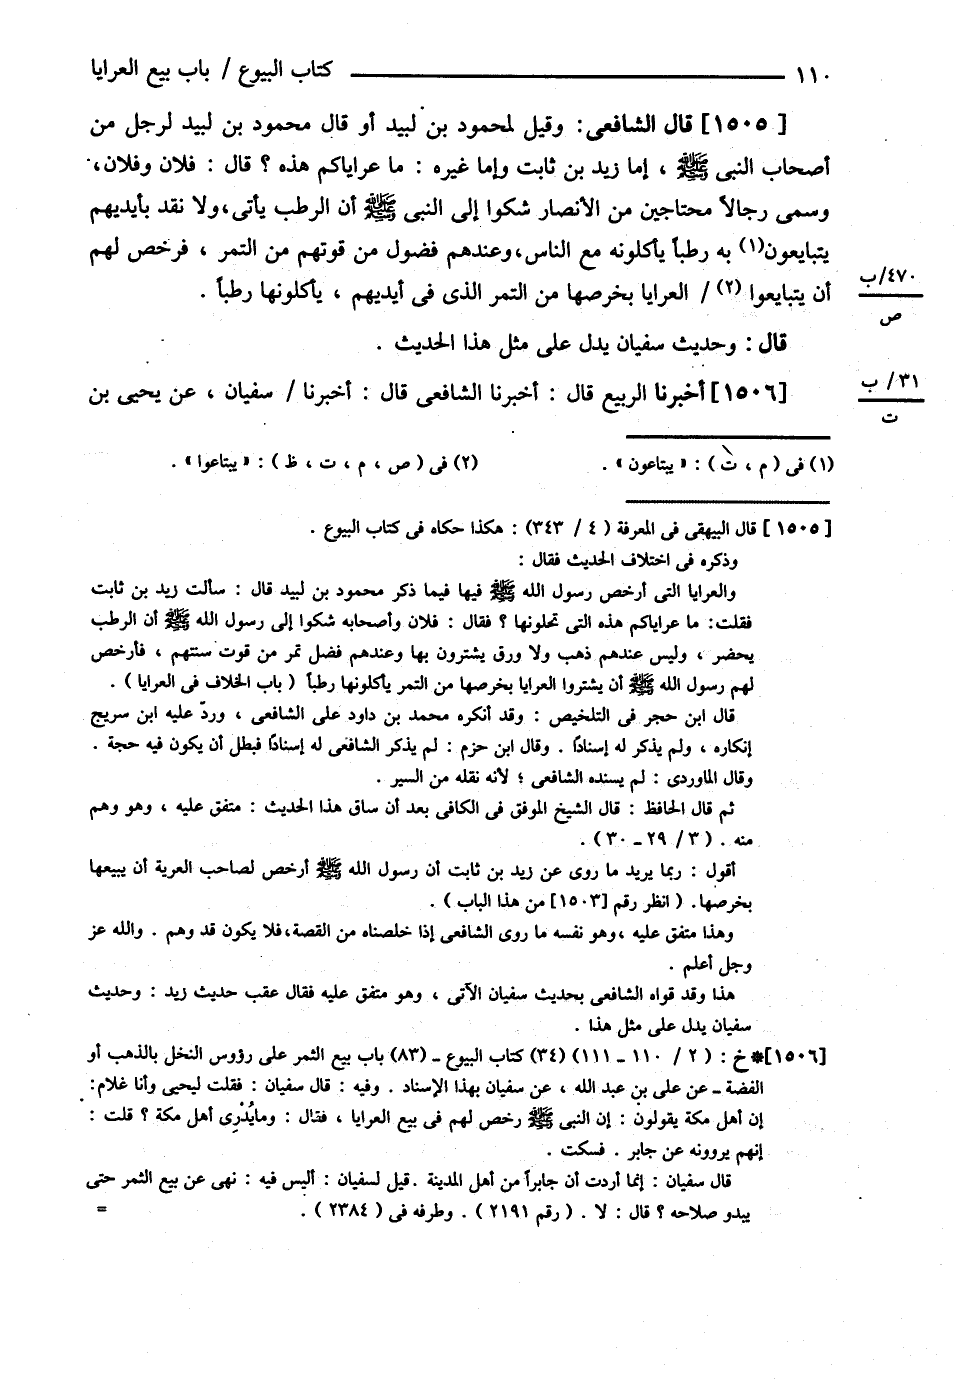 ١١٠ ــــــــــــــــــــــ كتاب البيوع / باب بيع العرايا
[ ١٥٠٥] قال الشافعى: وقيل لمحمود بن لبيد أو قال محمود بن لبيد لرجل من
أصحاب النبى ﷺ ، إما زيد بن ثابت وإما غيره : ما عراياكم هذه ؟ قال : فلان وفلان،
وسمى رجالاً محتاجين من الأنصار شكوا إلى النبى ﷺ أن الرطب يأتى،ولا نقد بأيديهم
يتبايعون(١) به رطباً يأكلونه مع الناس،وعندهم فضول من قوتهم من التمر ، فرخص لهم
أن يتبايعوا (٢) / العرايا بخرصها من التمر الذى فى أيديهم ، يأكلونها رطباً .
٤٧٠/ب
ص
قال : وحديث سفيان يدل على مثل هذا الحديث .
[١٥٠٦] أخبرنا الربيع قال : أخبرنا الشافعى قال : أخبرنا / سفيان ، عن يحيى بن
٣١/ ب
ت
(١) فى ( م ، ت ) : « يبتاعون » . (٢) فى ( ص ، م ، ت ، ظ ) : « يبتاعوا » .
[١٥٠٥] قال البيهقى فى المعرفة ( ٤ / ٣٤٣) : هكذا حكاه فى كتاب البيوع .
وذكره فى اختلاف الحديث فقال :
والعرايا التى أرخص رسول الله ﷺ فيها فيما ذكر محمود بن لبيد قال : سألت زيد بن ثابت
فقلت: ما عراياكم هذه التى تحلونها ؟ فقال : فلان وأصحابه شكوا إلى رسول الله ﷺ أن الرطب
يحضر ، وليس عندهم ذهب ولا ورق يشترون بها وعندهم فضل تمر من قوت سنتهم ، فأرخص
لهم رسول الله ﷺ أن يشتروا العرايا بخرصها من التمر يأكلونها رطباً ( باب الخلاف فى العرايا ) .
قال ابن حجر فى التلخيص : وقد أنكره محمد بن داود على الشافعى ، وردّ عليه ابن سريج
إنكاره ، ولم يذكر له إسنادًا . وقال ابن حزم : لم يذكر الشافعى له إسنادًا فبطل أن يكون فيه حجة .
وقال الماوردى : لم يسنده الشافعى ؛ لأنه نقله من السير .
ثم قال الحافظ : قال الشيخ الموفق فى الكافى بعد أن ساق هذا الحديث : متفق عليه ، وهو وهم
منه . ( ٣ / ٢٩ ـ ٣٠ ) .
أقول : ربما يريد ما روى عن زيد بن ثابت أن رسول الله ﷺ أرخص لصاحب العرية أن يبيعها
بخرصها. ( انظر رقم [١٥٠٣] من هذا الباب ) .
وهذا متفق عليه ،وهو نفسه ما روى الشافعى إذا خلصناه من القصة،فلا يكون قد وهم . والله عز
وجل أعلم .
هذا وقد قواه الشافعى بحديث سفيان الآتى ، وهو متفق عليه فقال عقب حديث زيد : وحديث
سفيان يدل على مثل هذا .
[١٥٠٦]*خ : ( ٢ / ١١٠ ـ ١١١) (٣٤) كتاب البيوع ـ (٨٣) باب بيع الثمر على رؤوس النخل بالذهب أو
الفضة ـ عن على بن عبد الله ، عن سفيان بهذا الإسناد . وفيه : قال سفيان : فقلت ليحيى وأنا غلام:
إن أهل مكة يقولون : إن النبى ﷺ رخص لهم فى بيع العرايا ، فقال : ومايُدْرِى أهل مكة ؟ قلت :
إنهم يروونه عن جابر . فسكت .
قال سفيان : إنما أردت أن جابراً من أهل المدينة .قيل لسفيان : أليس فيه : نهى عن بيع الثمر حتى
يبدو صلاحه ؟ قال : لا . ( رقم ٢١٩١ ) . وطرفه فى ( ٢٣٨٤ ) . =